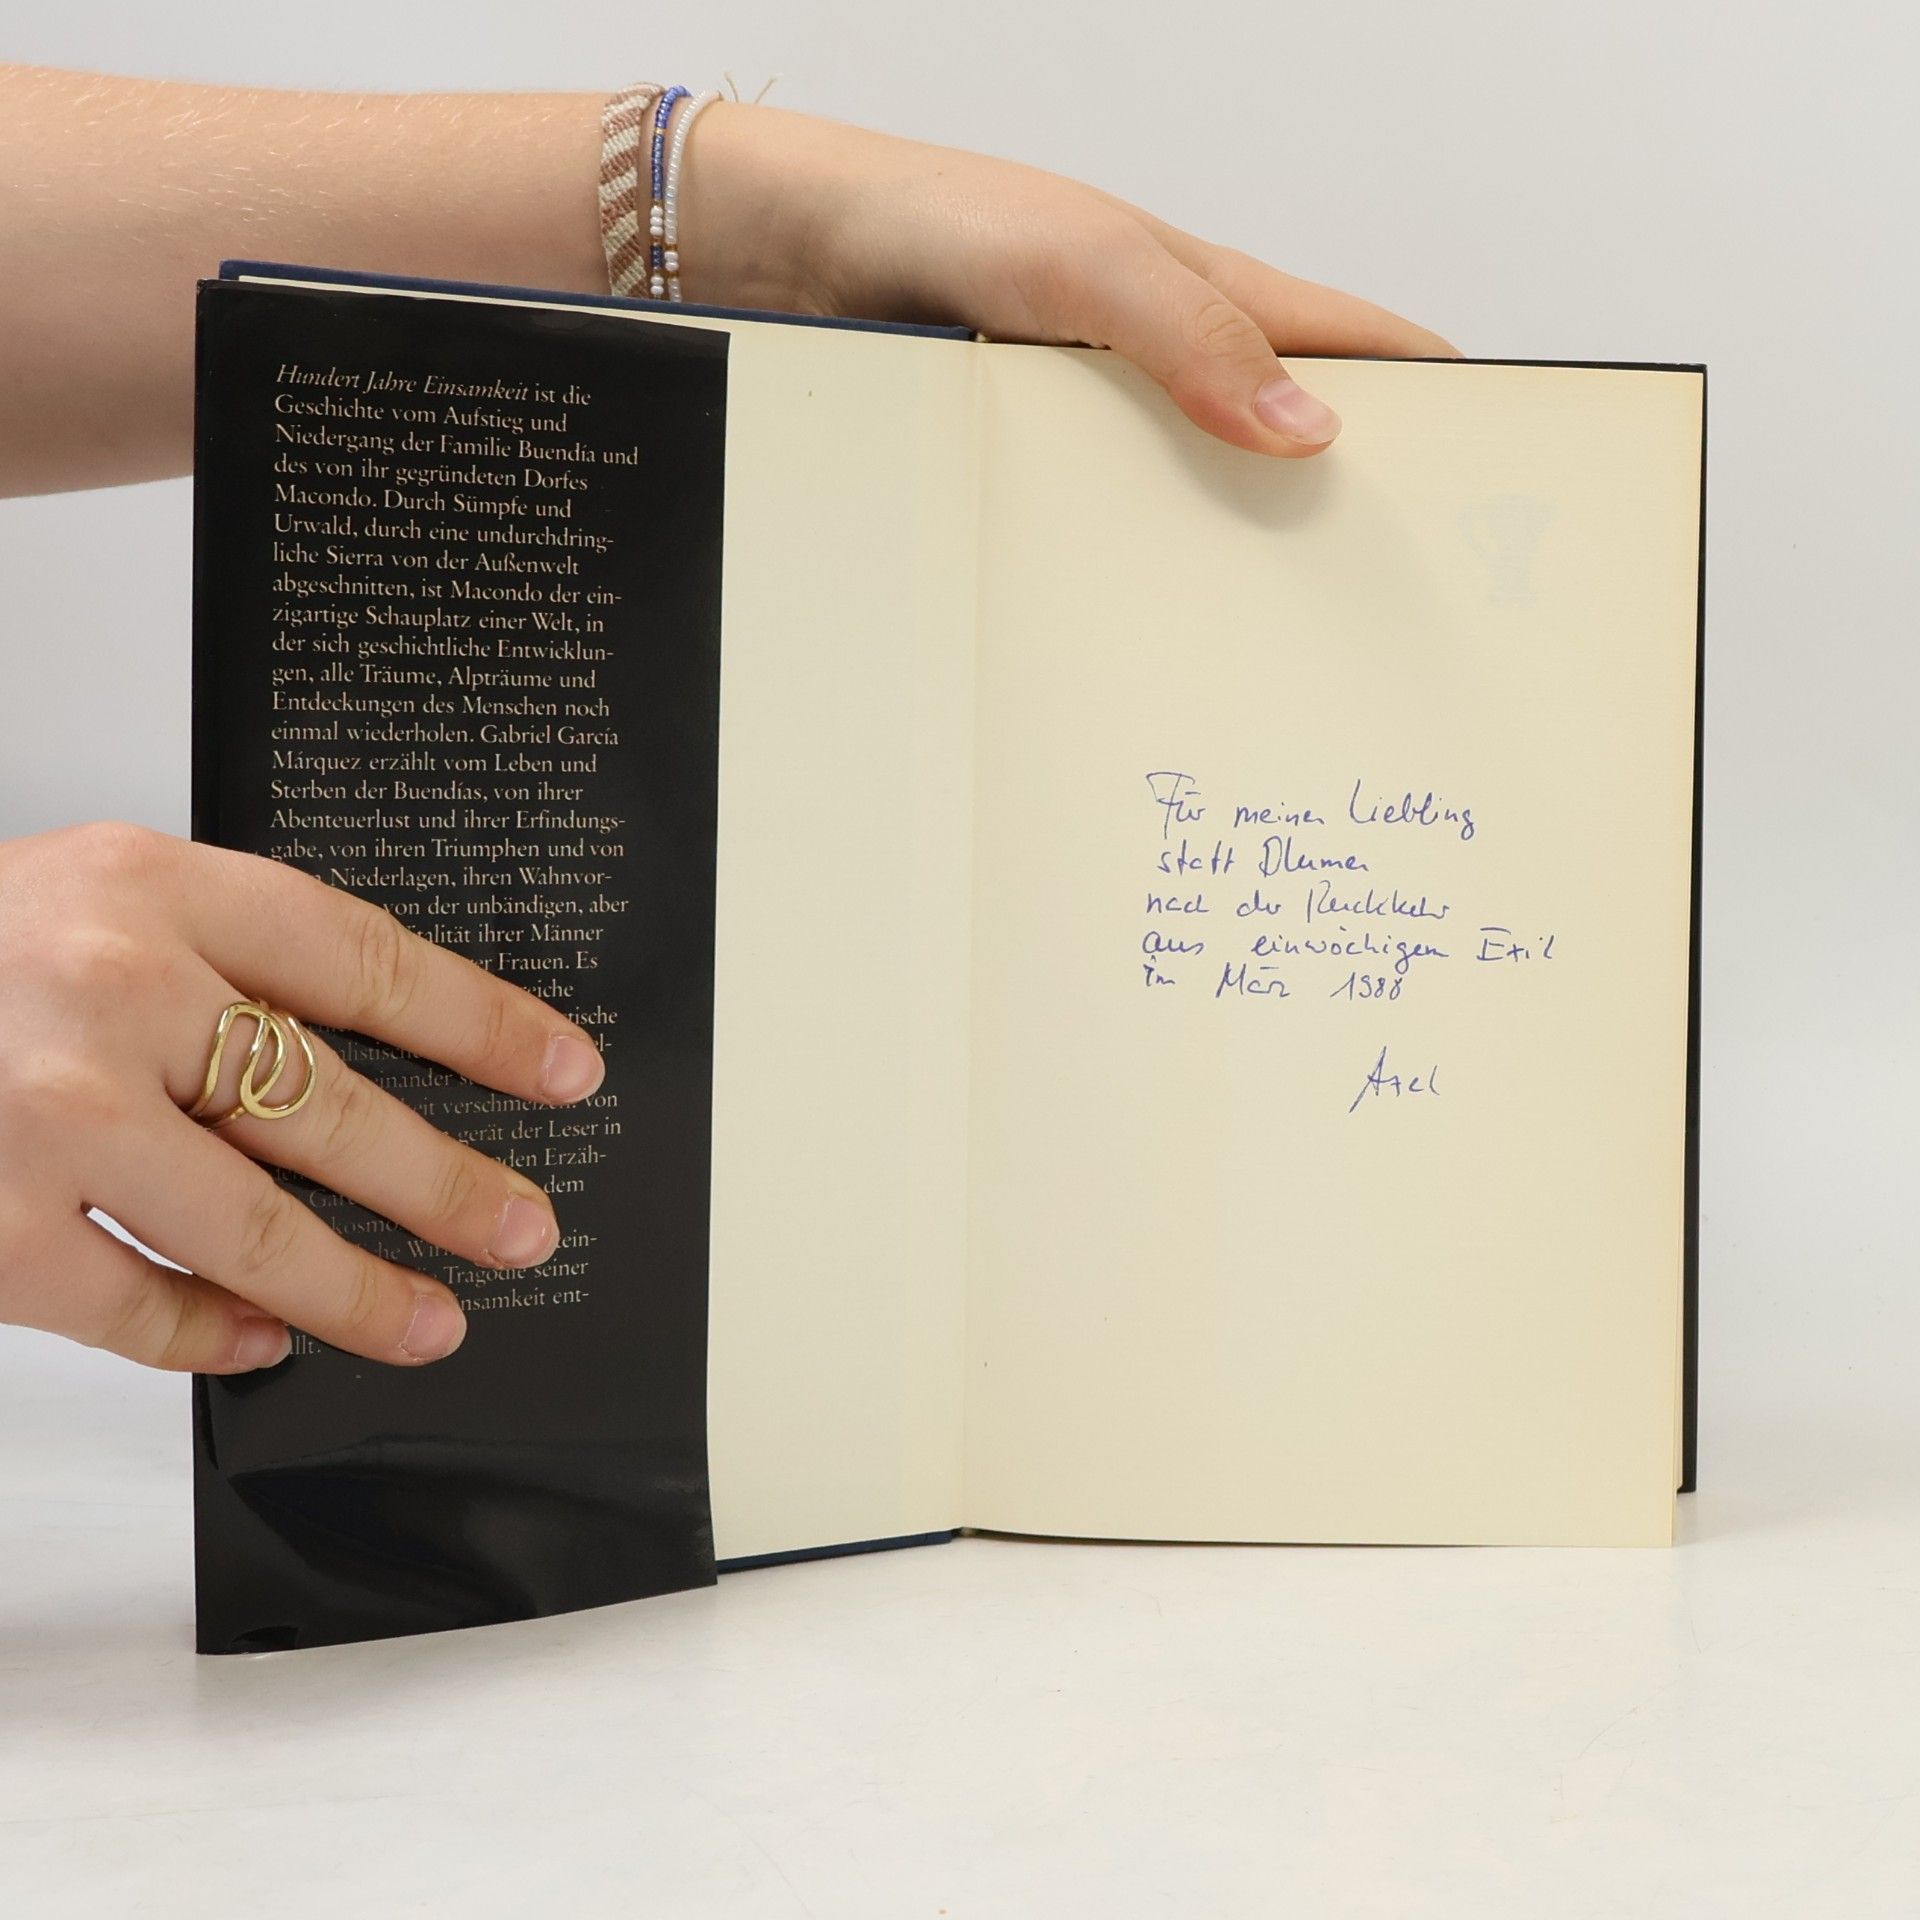 Hundert Jahre Einsamkeit ist die
Geschichte vom Aufstieg und
Niedergang der Familie Buendía und
des von ihr gegründeten Dorfes
Macondo. Durch Sümpfe und
Urwald, durch eine undurchdring-
liche Sierra von der Außenwelt
abgeschnitten, ist Macondo der ein-
zigartige Schauplatz einer Welt, in
der sich geschichtliche Entwicklun-
gen, alle Träume, Alpträume und
Entdeckungen des Menschen noch
einmal wiederholen. Gabriel García
Márquez erzählt vom Leben und
Sterben der Buendías, von ihrer
Abenteuerlust und ihrer Erfindungs-
gabe, von ihren Triumphen und von
Niederlagen, ihren Wahnvor-
von der unbändigen, aber
ihrer Männer
Frauen. Es
verschmelzen. Von
gerät der Leser in
Erzäh-
dem
Tragödie seiner
ent-
Für meinen Liebling
statt Blumen
nach der Rückkehr
aus einwöchigem Exil
im März 1988
Axel